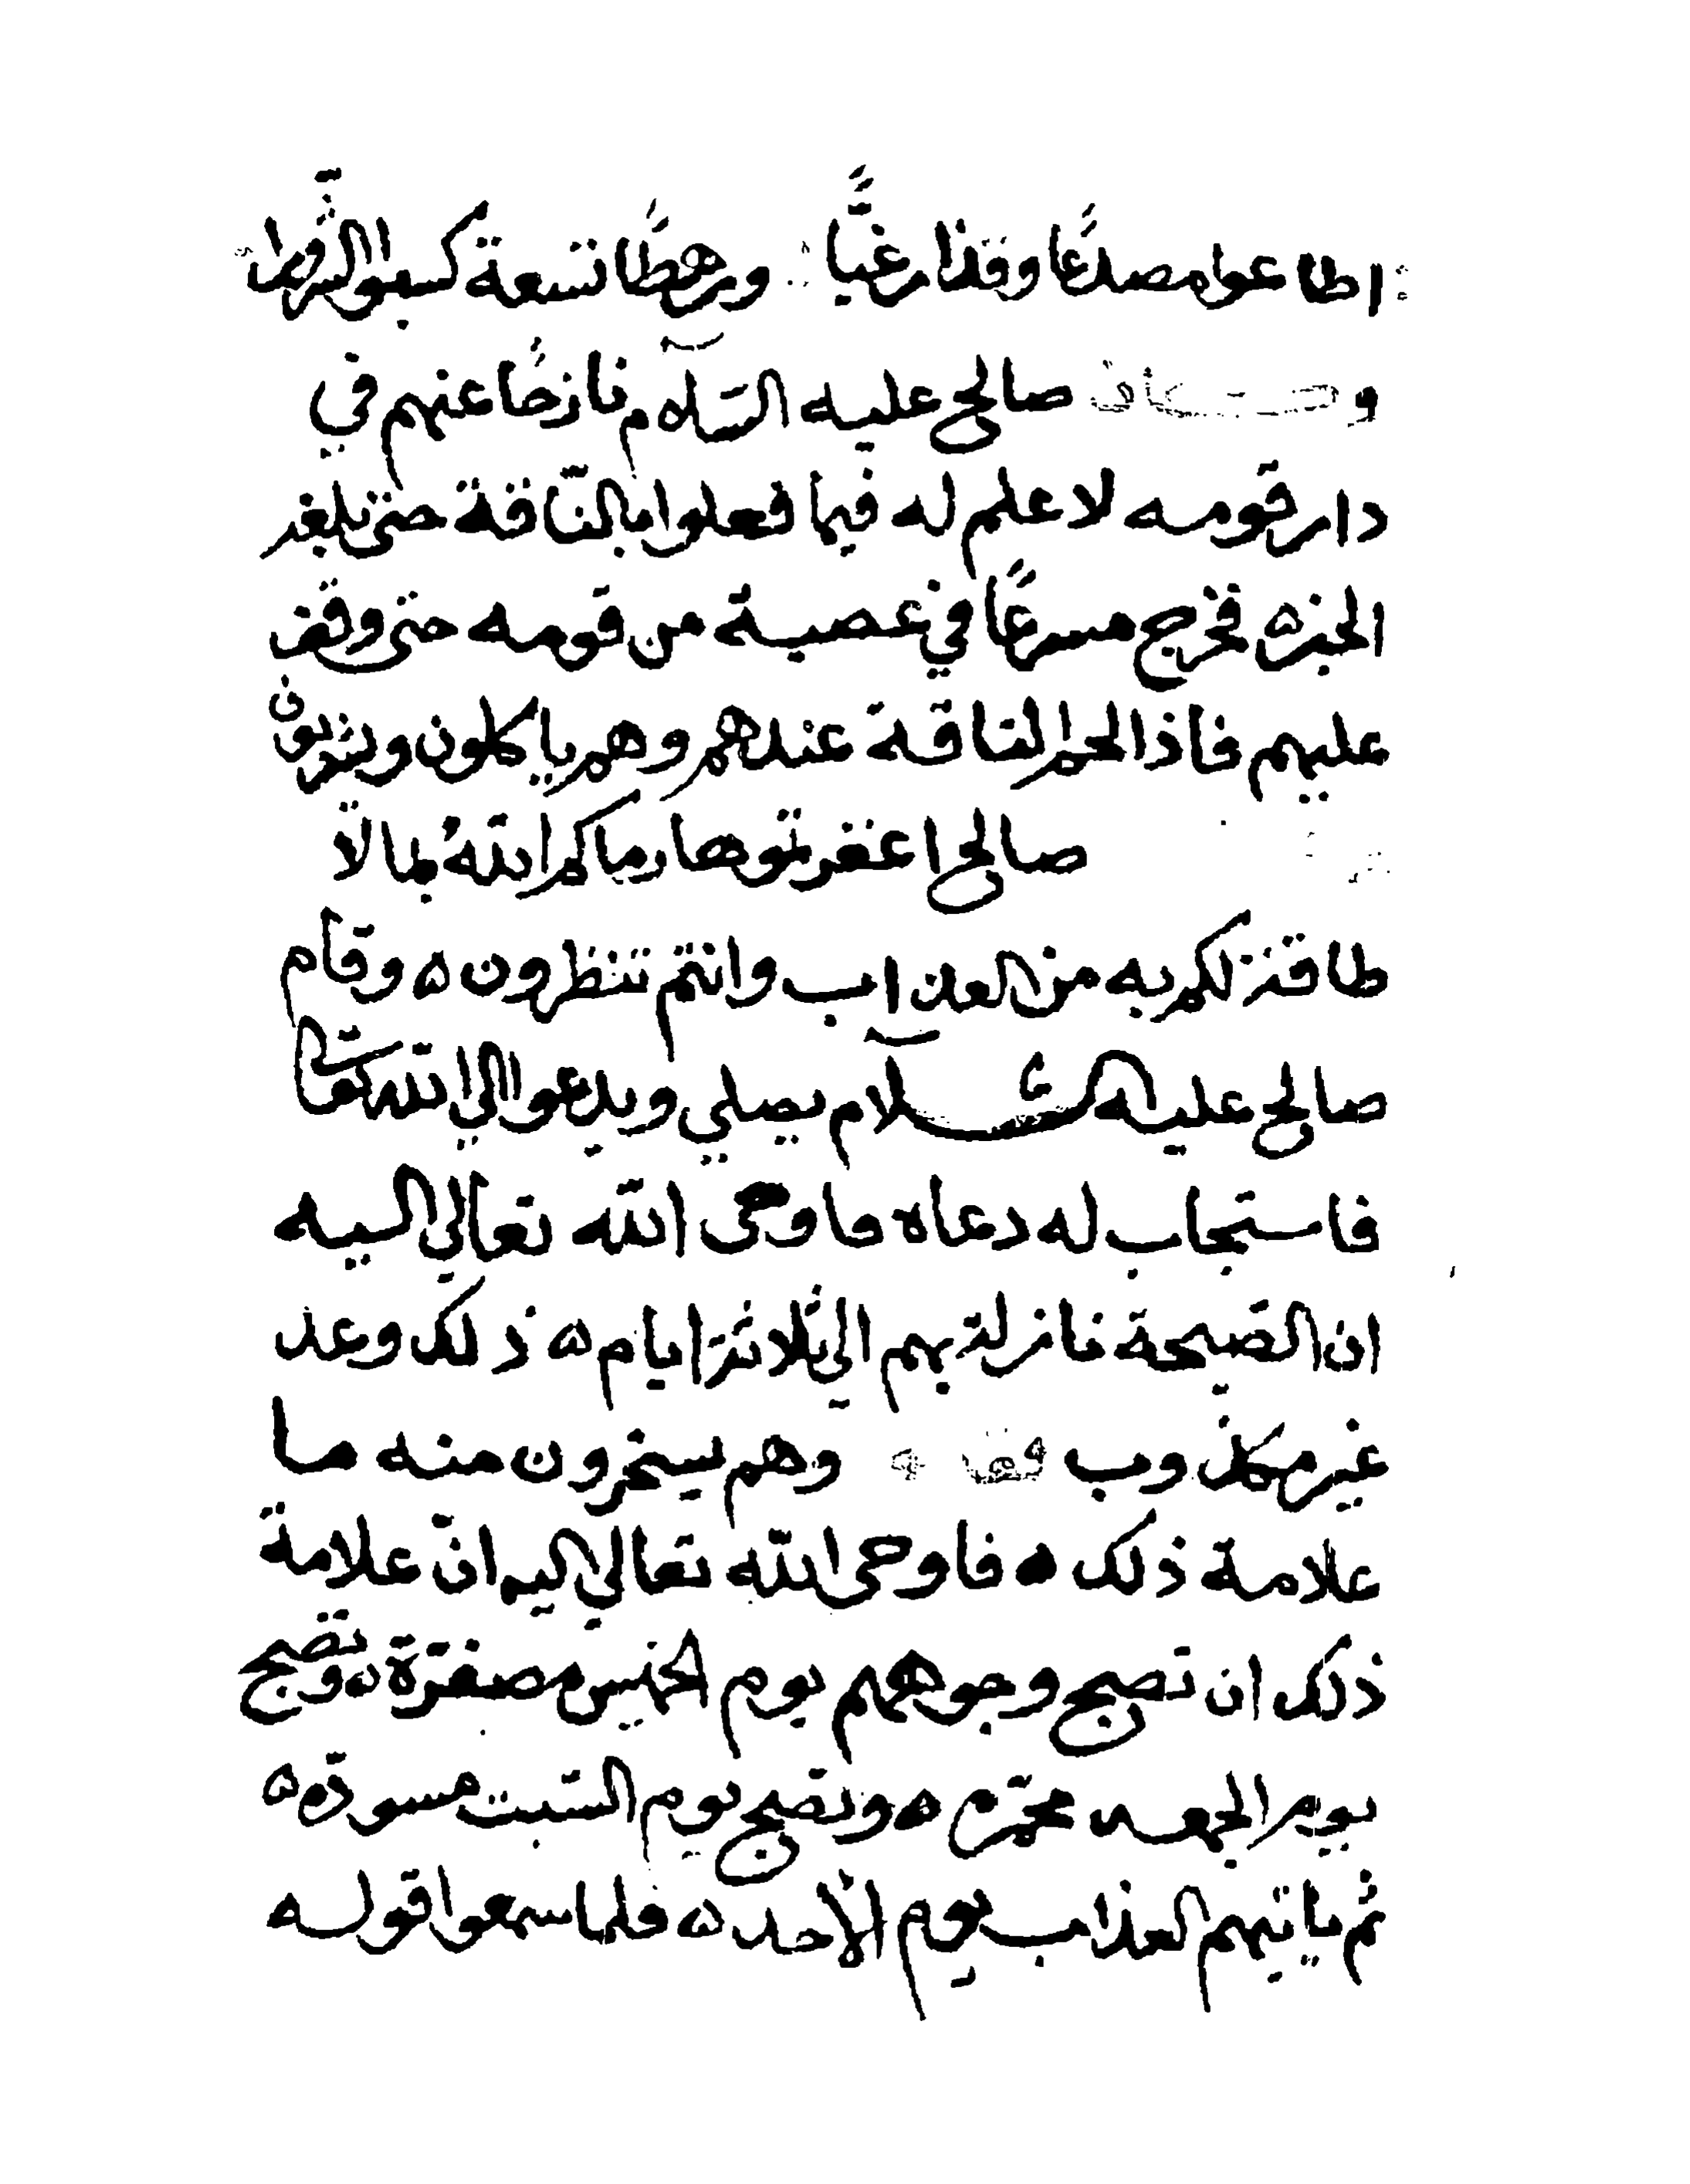 اطاعوا مصدعًا وقذارغيًّا ورهطًا تسعة كسبوا
وكان صالح عليه السّلام نازحًا عنهم في
دار قومه لا علم له فيما فعلوا بالنّاقة حتى بلغه
الخبره فخرج مسرعًا في عصبة من قومه حتى وقف
عليهم فاذا لحم الناقة عندهم وهم ياكلون ويشربون
صالح اعقرتوها رماكم الله بما لا
طاقة لكم به من العذاب وانتم تنظرون ه وقام
صالح عليه السلام يصلي ويدعوا الي الله تعالي
فاستجاب له دعاه فاوحى الله تعالي اليه
ان الصّيحة نازلة بهم الي ثلاثة ايام ه ذلك وعد
غير مكذوب وهم يسخرون منه ما
علامة ذلك ه فاوحى الله تعالي اليه انّ علامة
ذلك ان تصبح وجوههم يوم الخميس مصفرّة ه وتصبح
يوم الجمعه محمّره ه وتصبح يوم السّبت مسودّة ه
ثم ياتيهم العذاب يوم الأحد ه فلما سمعوا قوله